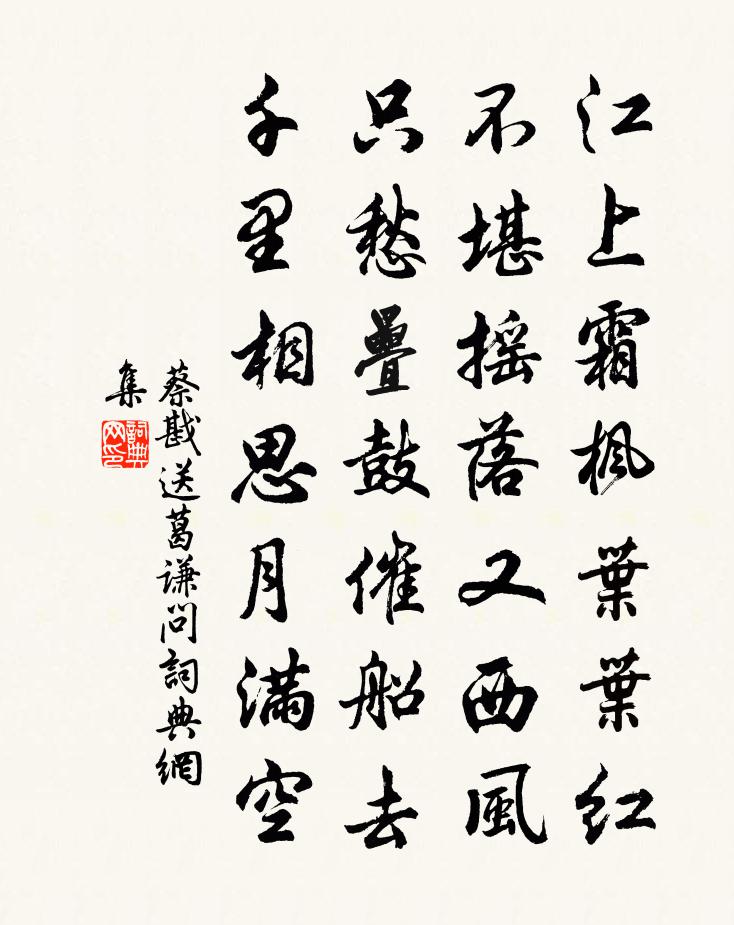 江上霜楓葉葉紅
不堪摇落又西風
只愁疊鼓催船去
千里相思月满空
蔡戡送葛谦問詞典網
集
詞典
网印